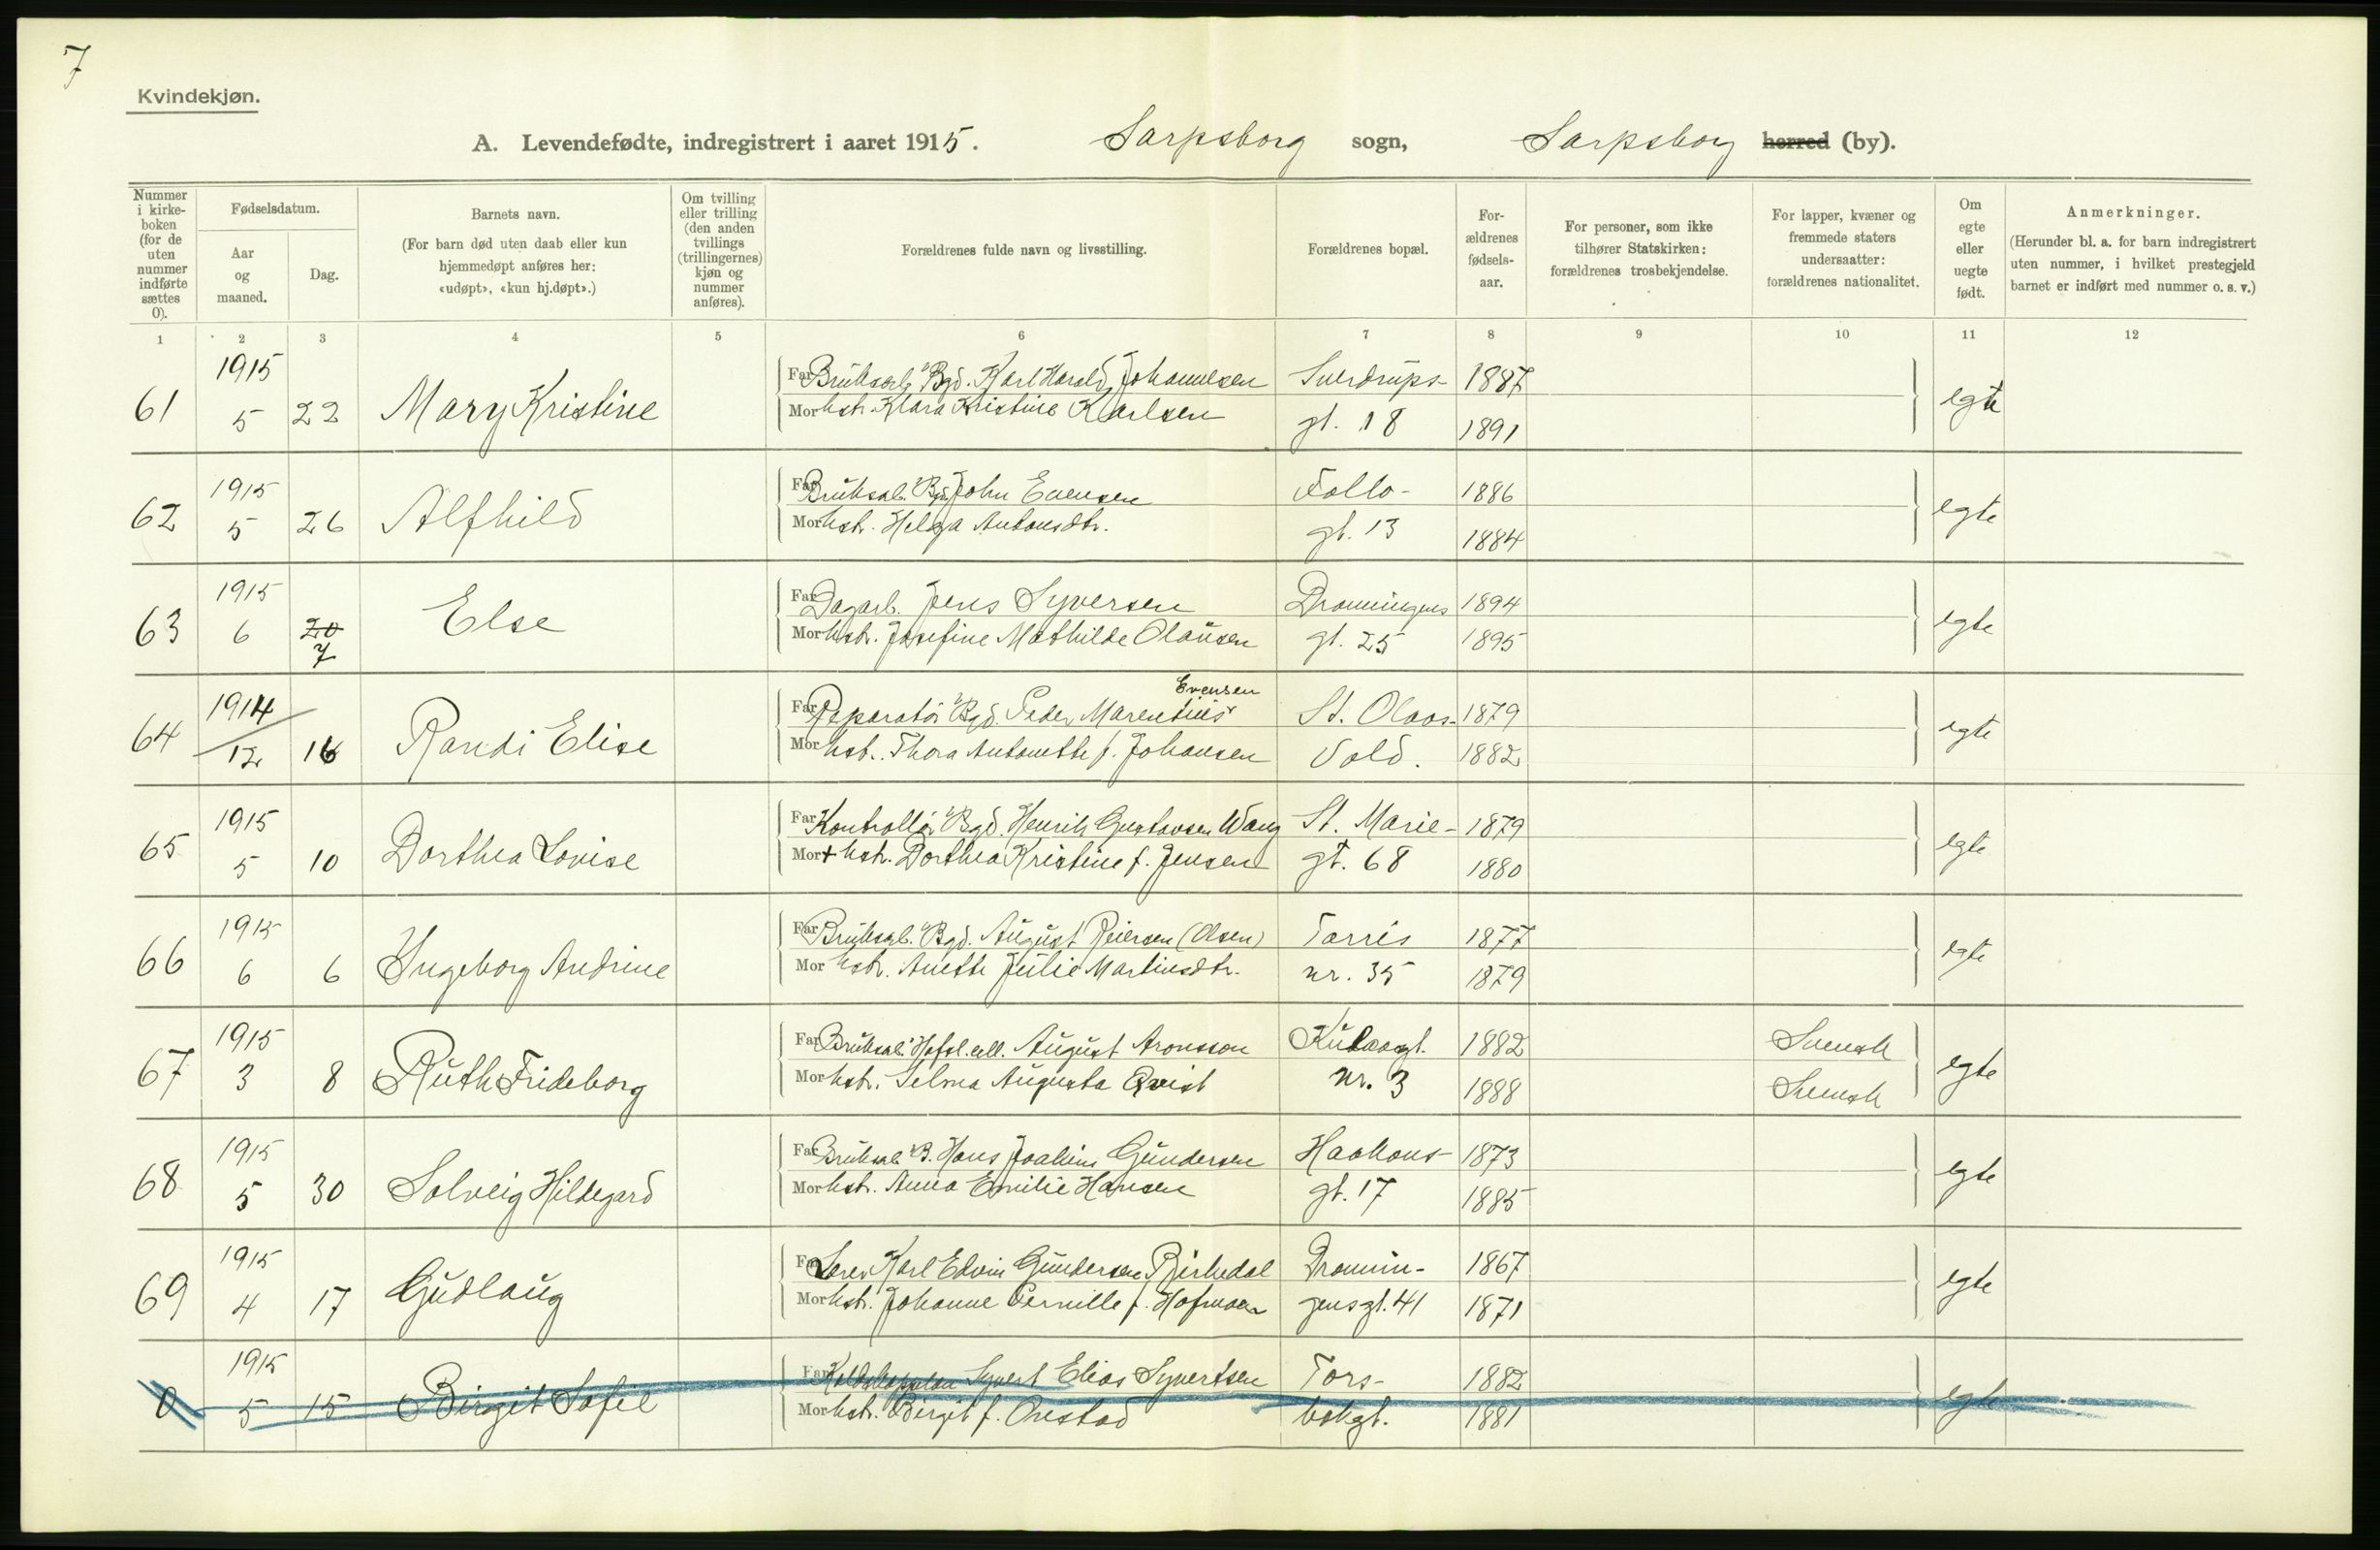 7
Kvindekjøn.
A. Levendefødte, indregistrert i aaret 1915. Sarpsborg sogn, Sarpsborg herred (by).
Nummer i kirke-boken (for de uten nummer indførte sættes 0).
Fødselsdatum.
Aar og maaned.
Dag.
Barnets navn.
(For barn død uten daab eller kun hjemmedøpt anføres her: «udøpt», «kun hj.døpt».)
Om tvilling eller trilling (den anden tvillings (trillingernes) kjøn og nummer anføres).
Forældrenes fulde navn og livsstilling.
Forældrenes bopæl.
For-ældrenes fødsels-aar.
For personer, som ikke tilhører Statskirken: forældrenes trosbekjendelse.
For lapper, kvæner og fremmede staters undersaatter: forældrenes nationalitet.
Om egte eller uegte født.
Anmerkninger.
(Herunder bl. a. for barn indregistrert uten nummer, i hvilket prestegjeld barnet er indført med nummer o. s. v.)
1 2 3 4 5 6 7 8 9 10 11 12
1915 Far Bruksarb. Bgd. Karl Harald Johannesen Sverdrups- 1887
61 5 22 Mary Kristine Mor hstr. Klara Kristine Karlsen gt. 18 1891 egte
1915 Far Bruksab. Bgd. John Evensen Follo- 1886
62 5 26 Alfhild Mor hstr. Helga Antonsdtr. gt. 13 1884 egte
1915 Far Dagarb. Jens Syversen Dronningens 1894
63 6 20 7 Else Mor hstr. Josefine Mathilde Olausen gt. 25 1895 egte
Evensen
1914 Far Reparatør Bgd. Peder Marentius St. Olavs- 1879
64 12 16 Randi Elise Mor hstr. Thora Antonette f. Johansen Vold. 1882 egte
1915 Far Kontrollør Bgd. Henrik Gustavsen Wang St. Marie- 1879
65 5 10 Dorthea Lovise Mor + hstr. Dorthea Kristine f. Jensen gt. 68 1880 egte
1915 Far Bruksab. Bgd. August Reiersen (Olsen) Tarris 1877
66 6 6 Ingeborg Andrine Mor hstr. Anette Julie Martinsdtr. nr. 35 1879 egte
1915 Far Bruksab. Hafsl. cell. August Aronsson Kulaasgt. 1882 Svensk
67 3 8 Ruth Frideborg Mor hstr. Selma Augusta Qvist nr. 3 1888 Svensk egte
1915 Far Bruksab. B. Hans Joakim Gundersen Haakons- 1873
68 5 30 Solveig Hildegard Mor hstr. Anna Emilie Hansen gt. 17 1885 egte
1915 Far Lærer Karl Edvin Gundersen Birkedal Dronnin- 1867
69 4 17 Gudlaug Mor hstr. Johanne Pernille f. Hofmoen gensgt. 41 1871 egte
1915 Far Syvert Elias Syvertsen Tors- 1882
0 5 15 Birgit Sofie Mor hstr. Birgit f. Onstad bekgt. 1881 egte